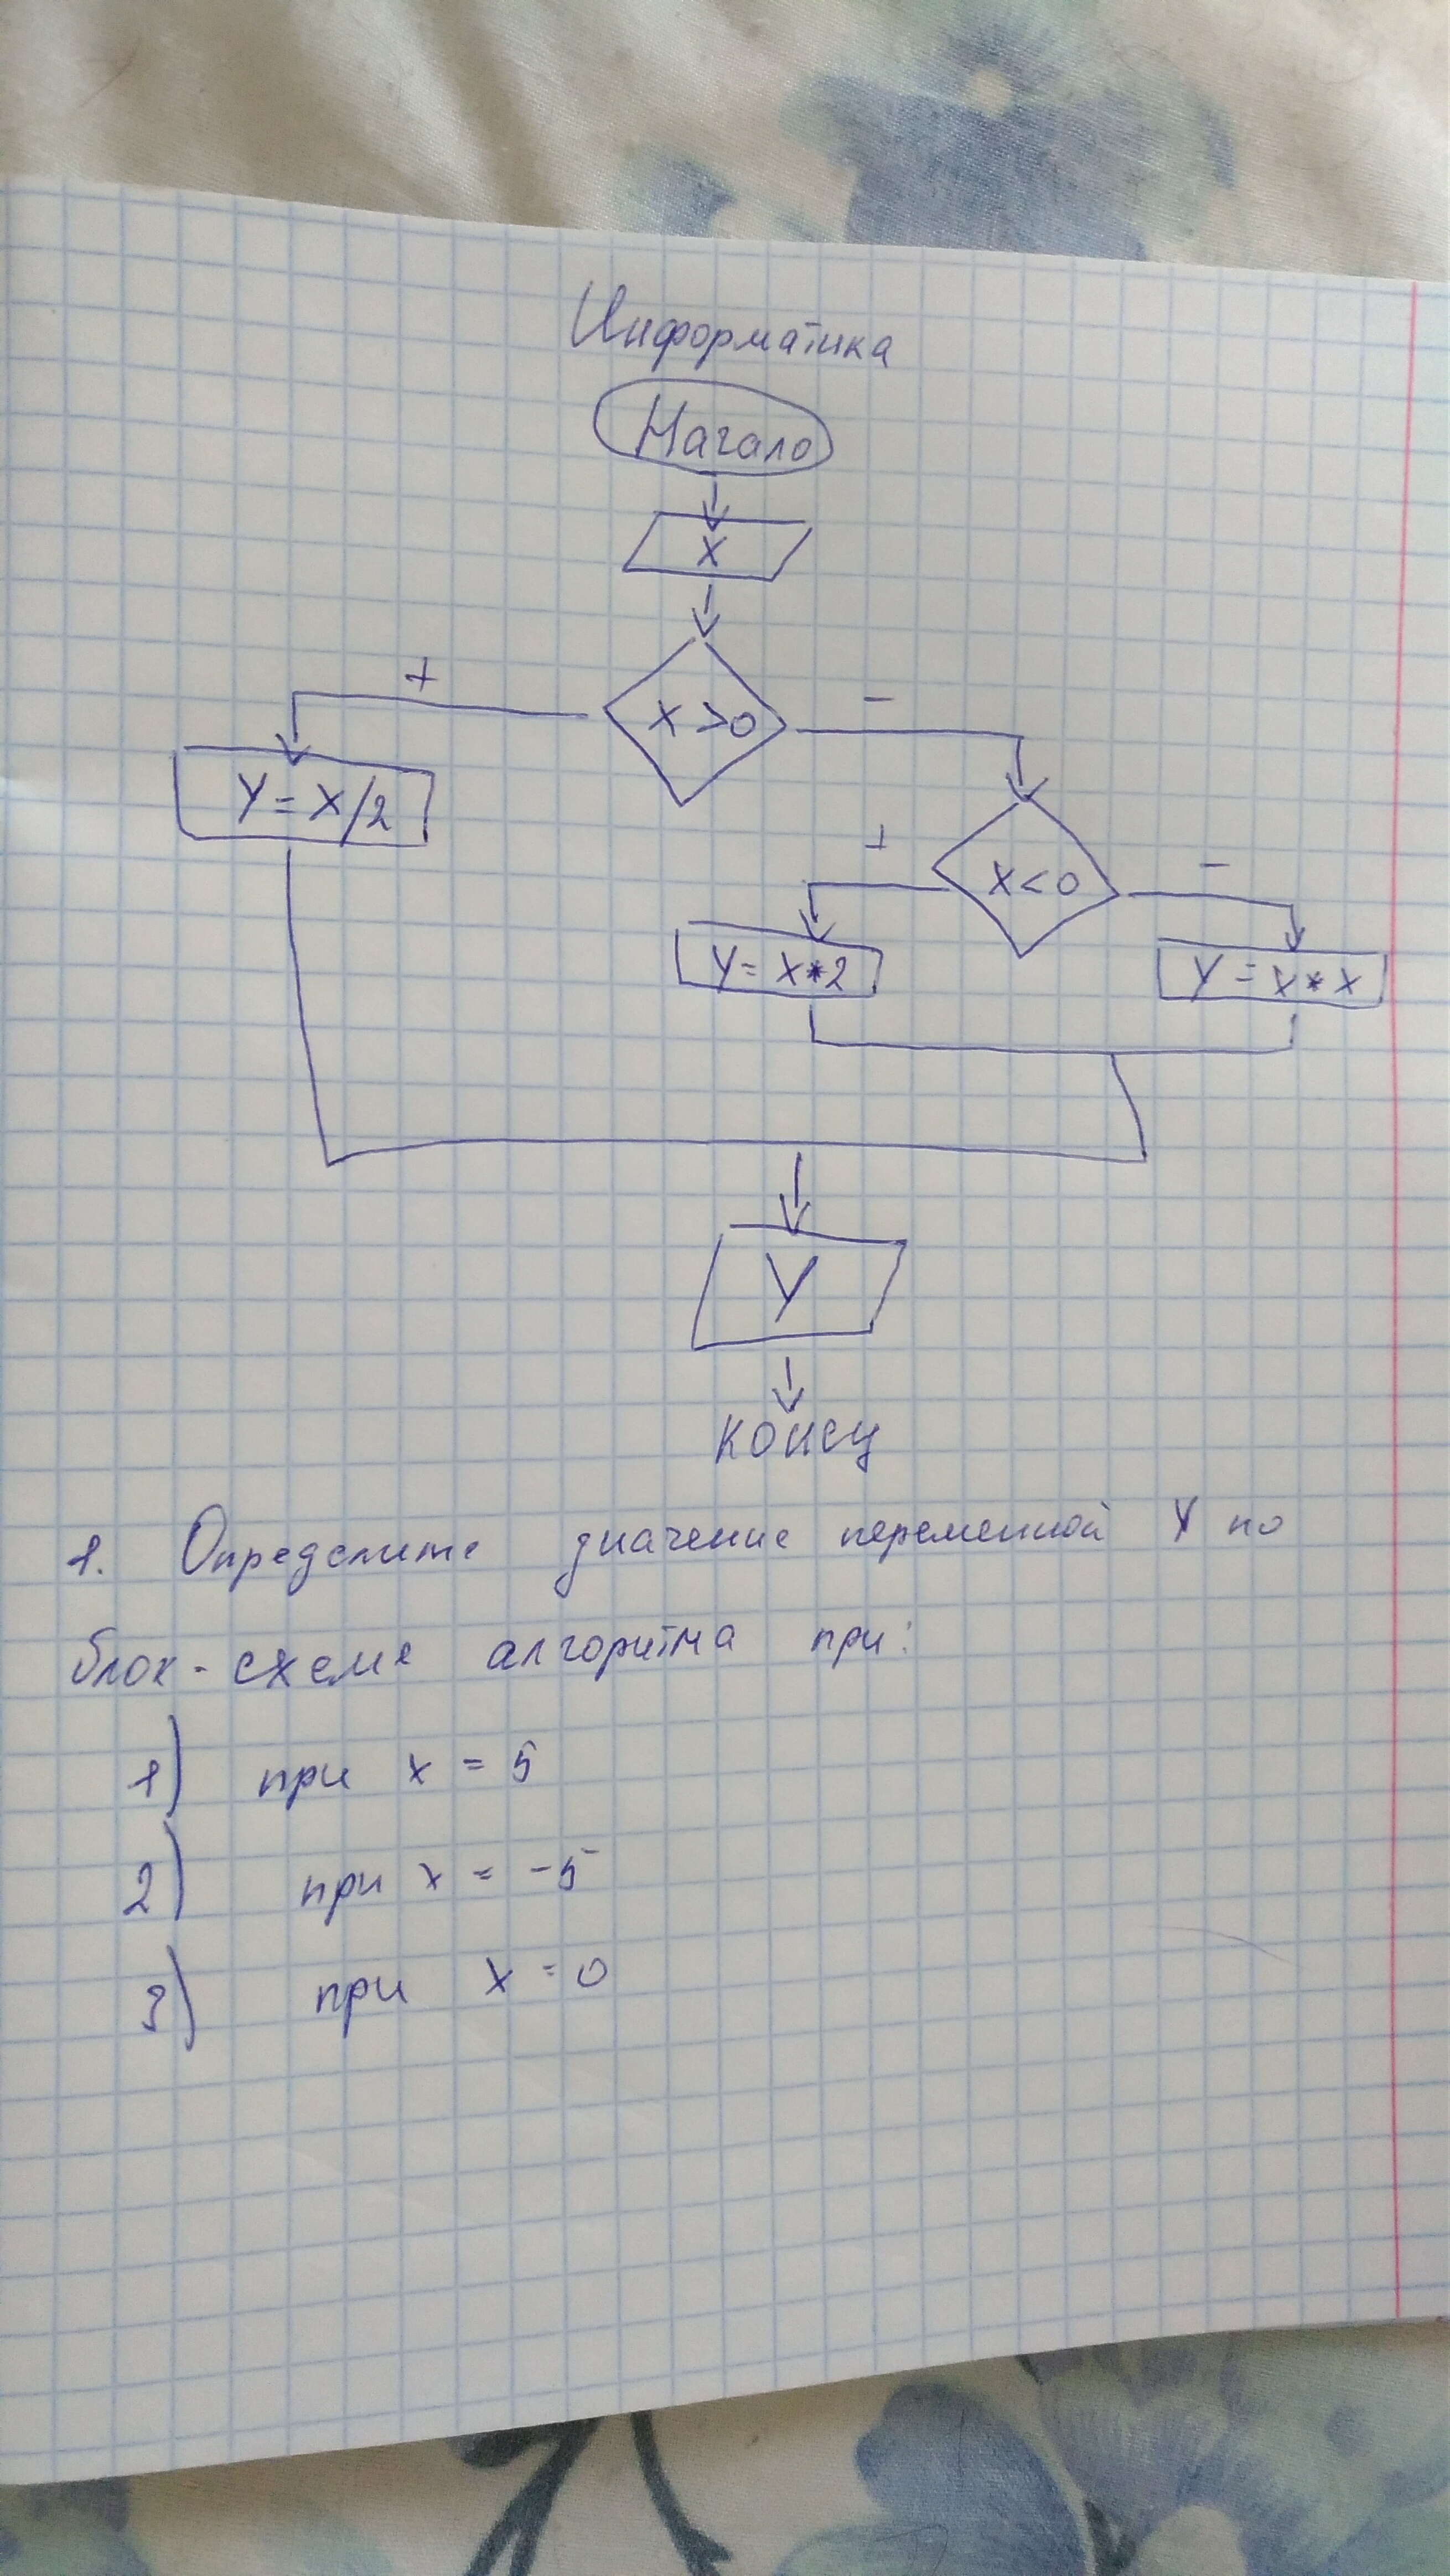 Информатика
Начало
X
+
X >0
-
Y = X/2
+
X<0
-
Y = X*2
Y = X * X
Y
конец
1. Определите значение переменной Y по
блок-схеме алгоритма при:
1) при x = 5
2) при x = -5
3) при x = 0